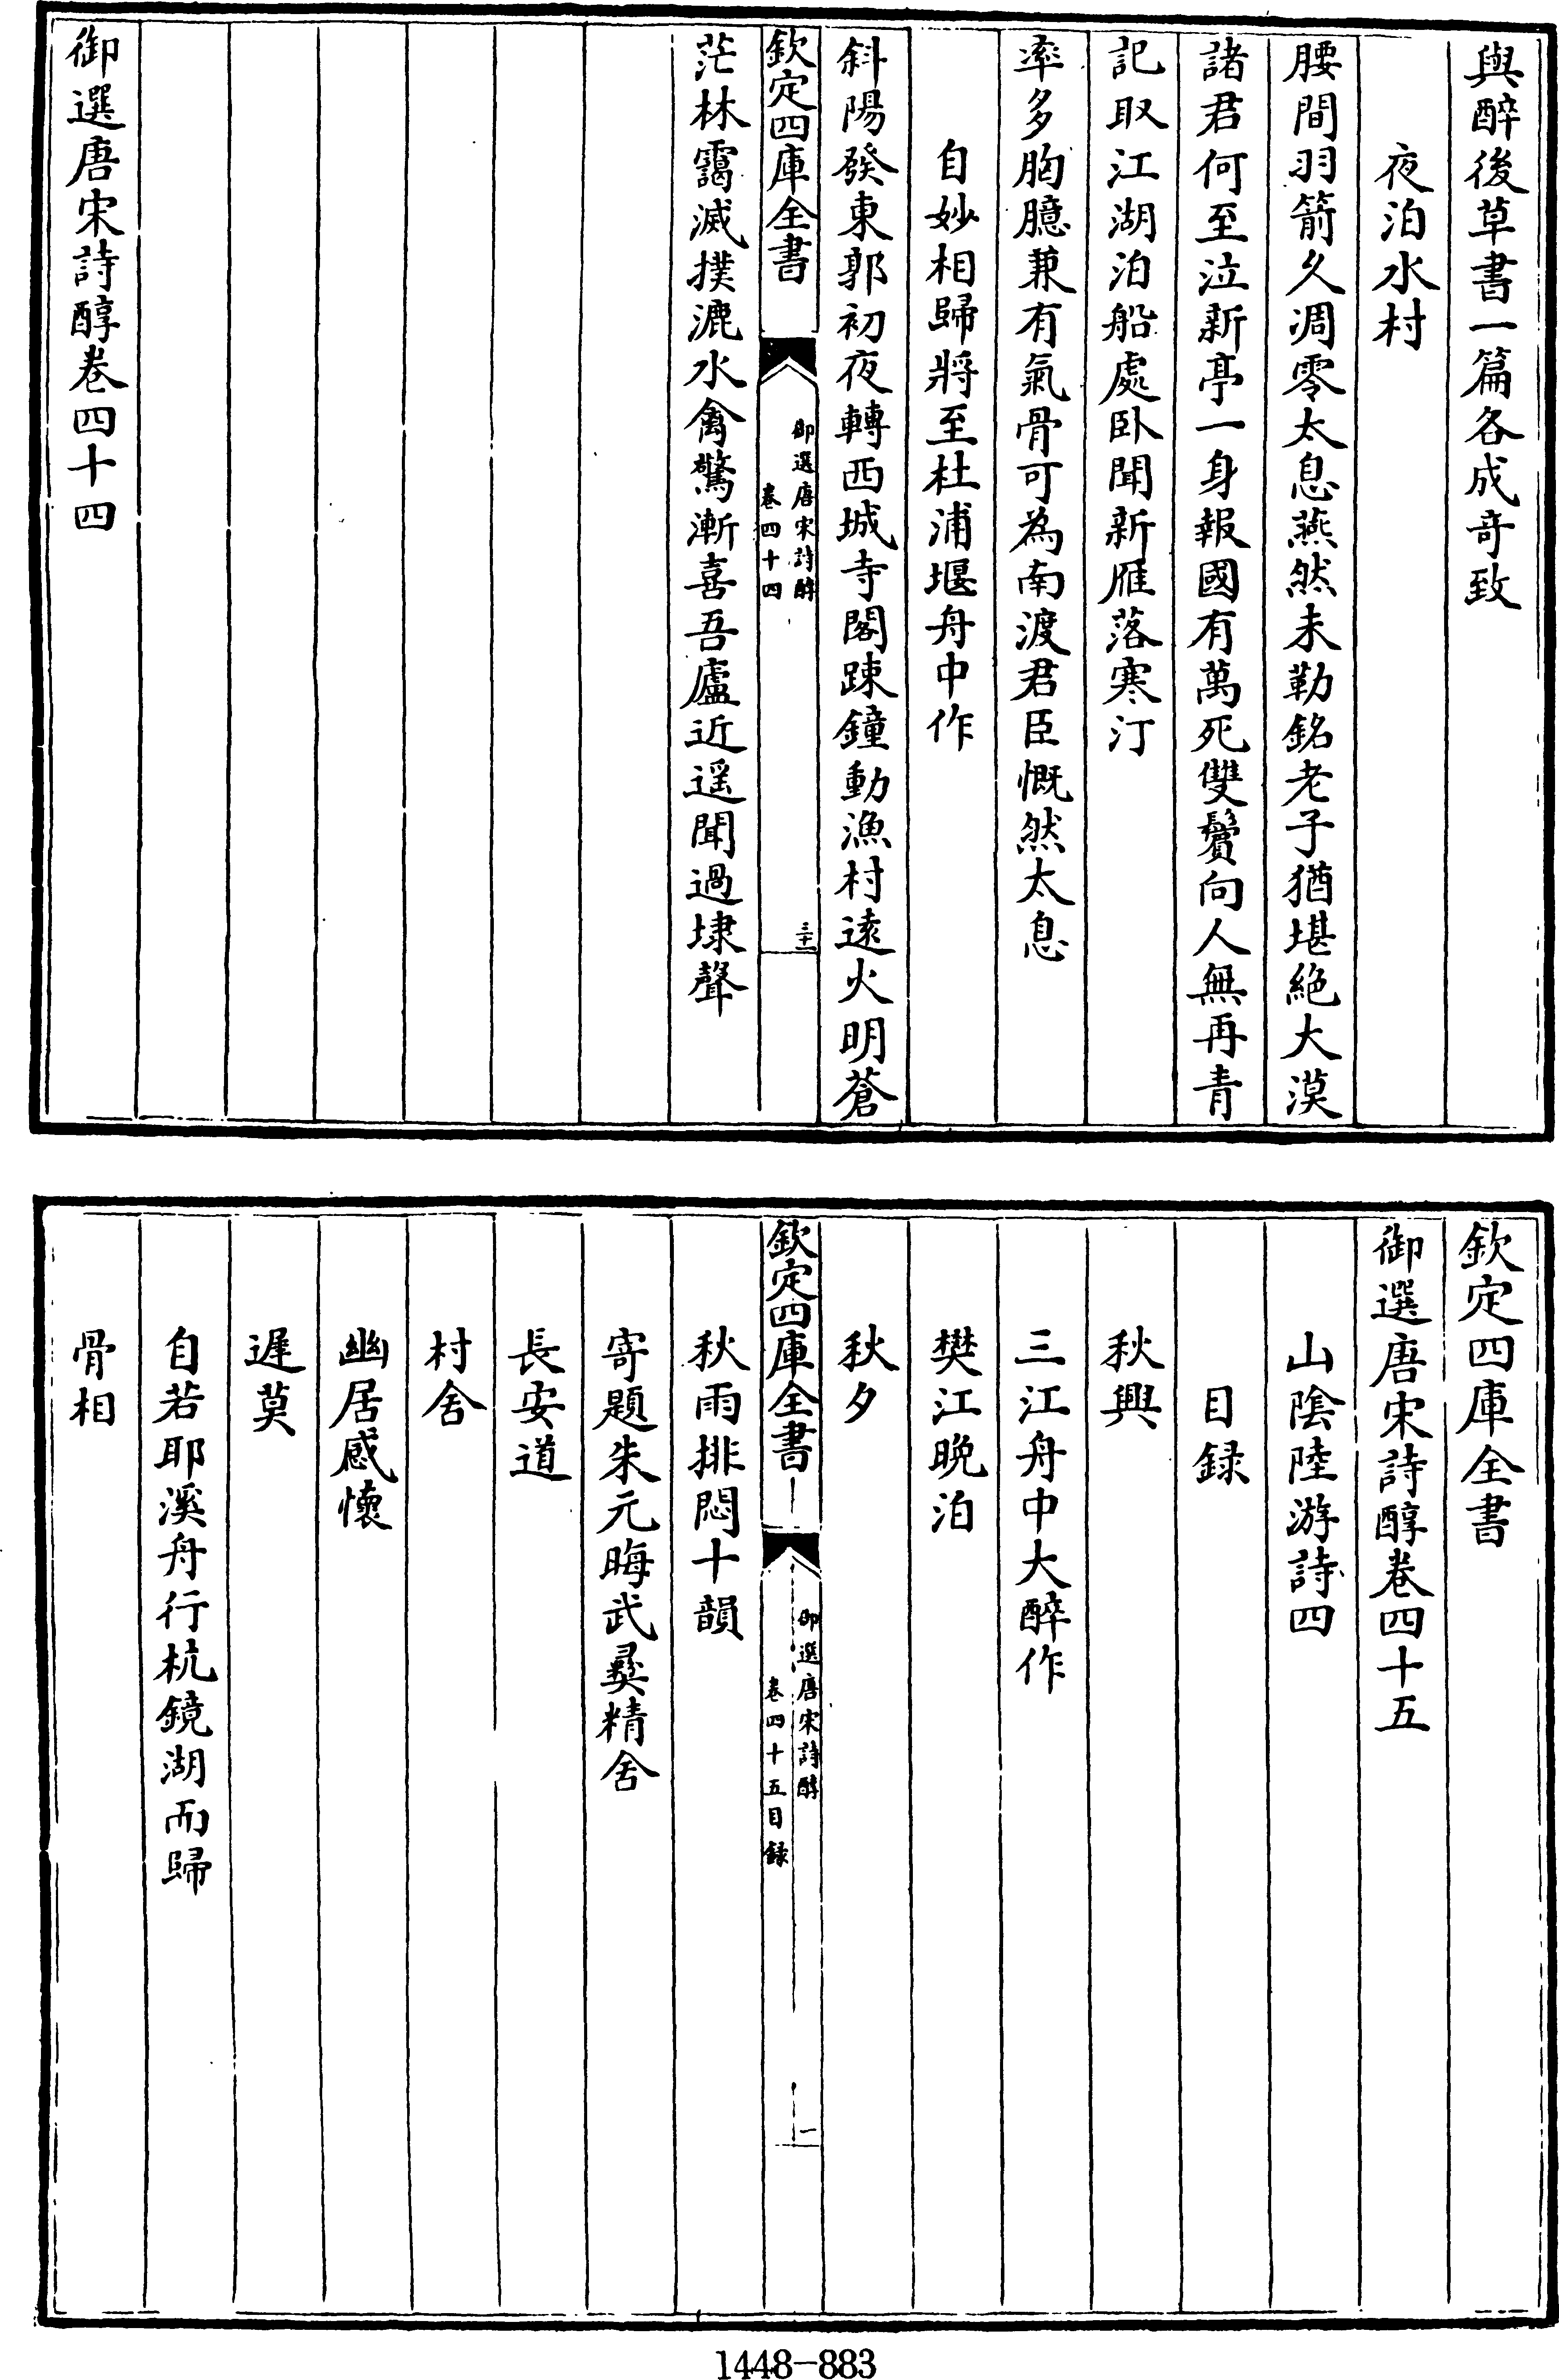 與醉後草書一篇各成奇致
夜泊水村
腰間羽箭久凋零太息燕然未勒銘老子猶堪絕大漠
諸君何至泣新亭一身報國有萬死雙鬢向人無再青
記取江湖泊船處臥聞新雁落寒汀
率多胸臆兼有氣骨可為南渡君臣慨然太息
自妙相歸將至杜浦堰舟中作
斜陽發東郭初夜轉西城寺閣踈鐘動漁村遠火明蒼
欽定四庫全書
御選唐宋詩醇
卷四十四
三十一
茫林靄滅撲漉水禽驚漸喜吾廬近遥聞過埭聲
御選唐宋詩醇卷四十四
欽定四庫全書
御選唐宋詩醇卷四十五
山陰陸游詩四
目録
秋興
三江舟中大醉作
樊江晚泊
秋夕
欽定四庫全書
御選唐宋詩醇
卷四十五目録
一
秋雨排悶十韻
寄題朱元晦武彛精舍
長安道
村舍
幽居感懷
遲莫
自若耶溪舟行杭鏡湖而歸
骨相
1448-883